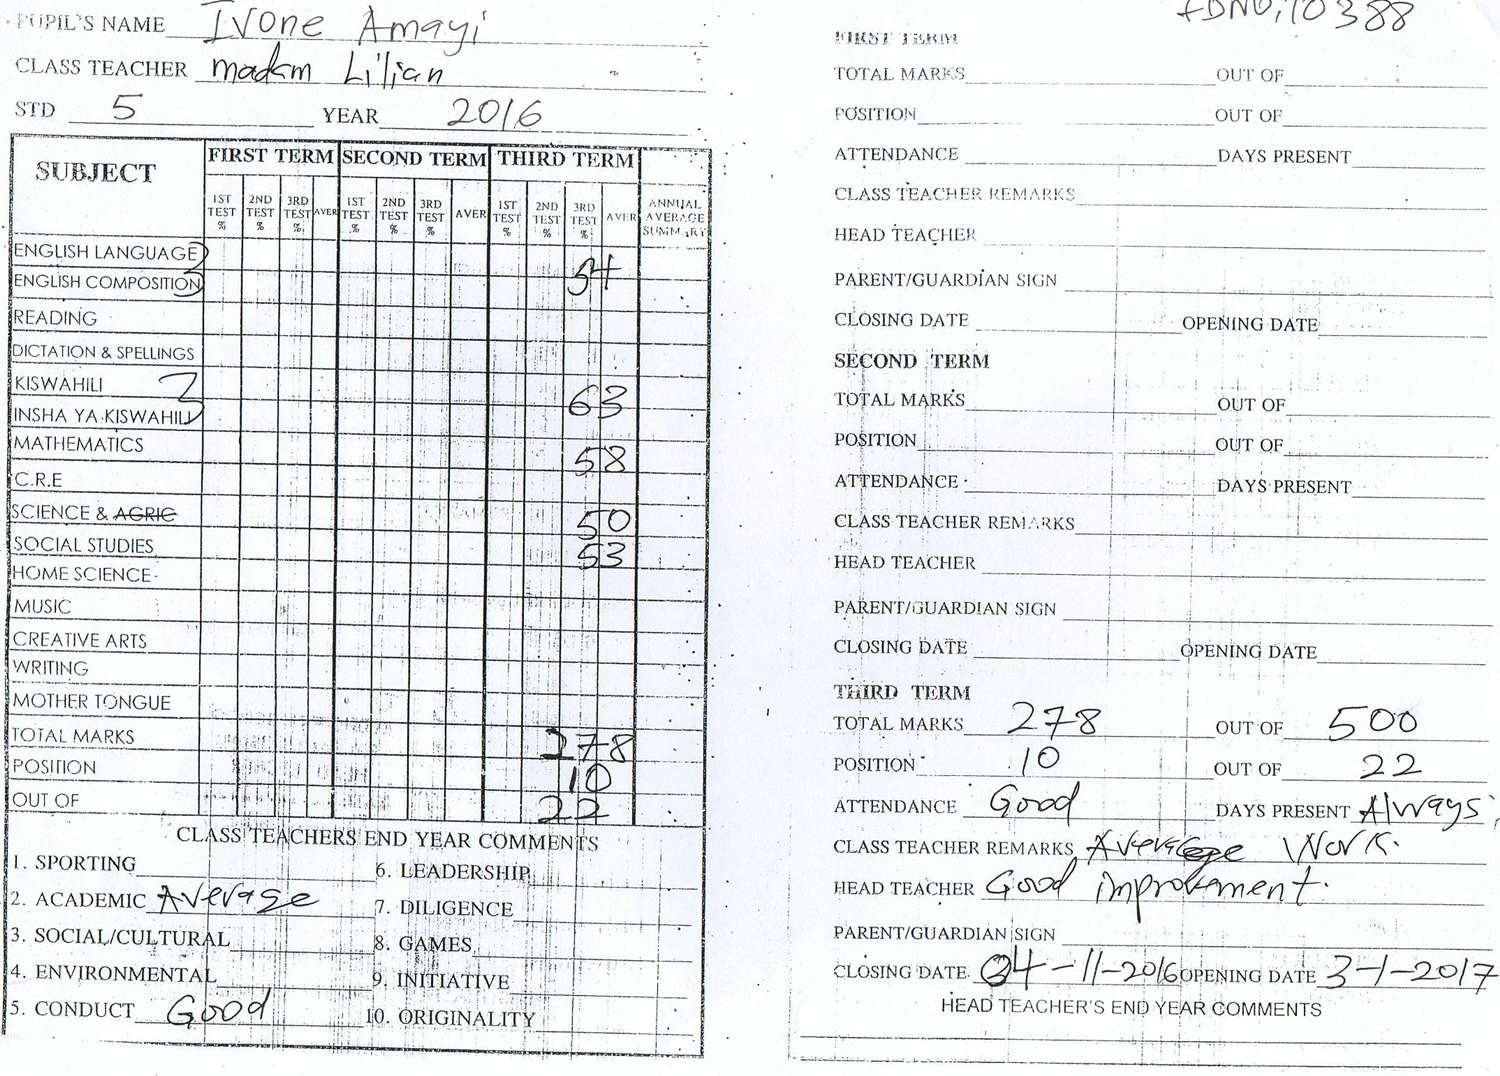 PUPIL'S NAME Ivone Amayi
CLASS TEACHER madam Lilian
STD 5 YEAR 2016
SUBJECT FIRST TERM SECOND TERM THIRD TERM
1ST TEST % 2ND TEST % 3RD TEST % AVER 1ST TEST % 2ND TEST % 3RD TEST % AVER 1ST TEST % 2ND TEST % 3RD TEST % AVER ANNUAL AVERAGE SUMMARY
ENGLISH LANGUAGE
ENGLISH COMPOSITION 54
READING
DICTATION & SPELLINGS
KISWAHILI
INSHA YA KISWAHILI 63
MATHEMATICS 58
C.R.E
SCIENCE & AGRIC 50
SOCIAL STUDIES 53
HOME SCIENCE
MUSIC
CREATIVE ARTS
WRITING
MOTHER TONGUE
TOTAL MARKS 278
POSITION 10
OUT OF 22
CLASS TEACHERS END YEAR COMMENTS
1. SPORTING 6. LEADERSHIP
2. ACADEMIC Average 7. DILIGENCE
3. SOCIAL/CULTURAL 8. GAMES
4. ENVIRONMENTAL 9. INITIATIVE
5. CONDUCT Good 10. ORIGINALITY
10388
FIRST TERM
TOTAL MARKS OUT OF
POSITION OUT OF
ATTENDANCE DAYS PRESENT
CLASS TEACHER REMARKS
HEAD TEACHER
PARENT/GUARDIAN SIGN
CLOSING DATE OPENING DATE
SECOND TERM
TOTAL MARKS OUT OF
POSITION OUT OF
ATTENDANCE DAYS PRESENT
CLASS TEACHER REMARKS
HEAD TEACHER
PARENT/GUARDIAN SIGN
CLOSING DATE OPENING DATE
THIRD TERM
TOTAL MARKS 278 OUT OF 500
POSITION 10 OUT OF 22
ATTENDANCE Good DAYS PRESENT Always
CLASS TEACHER REMARKS Average Work.
HEAD TEACHER Good improvement.
PARENT/GUARDIAN SIGN
CLOSING DATE 04-11-2016 OPENING DATE 3-1-2017
HEAD TEACHER'S END YEAR COMMENTS